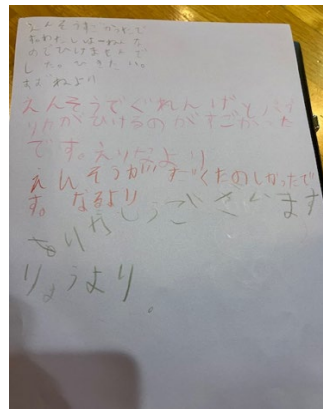 えんそうすごかったで
すわたしは一ねんな
のでひけませんで
した。ひきたい。
えんそうでぐれんげと
りたがひけるのがすごかった
です。えりなより
えんそうがすごくたのしかったで
す。なるより
ありがとうございます
りょうより